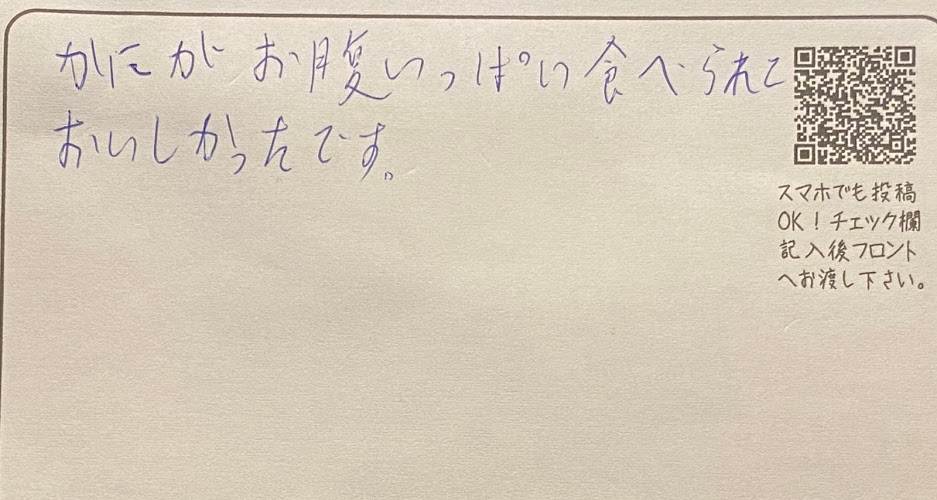 かにがお腹いっぱい食べられて
おいしかったです。
スマホでも投稿
OK！チェック欄
記入後フロント
へお渡し下さい。